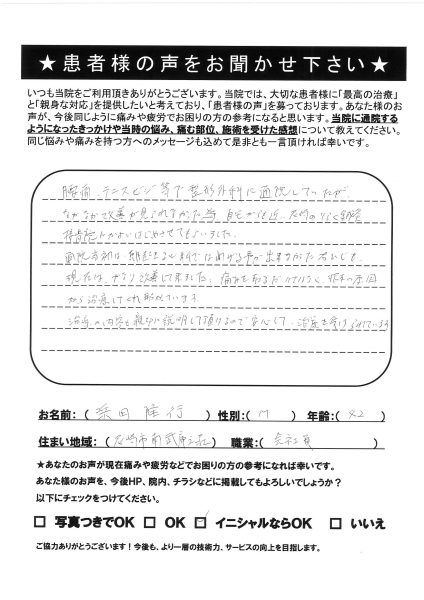 ★患者様の声をお聞かせ下さい★
いつも当院をご利用頂きありがとうございます。当院では、大切な患者様に「最高の治療」
と「親身な対応」を提供したいと考えており、「患者様の声」を募っております。あなた様のお
声が、今後同じように痛みや疲労でお困りの方の参考になると思います。当院に通院する
ようになったきっかけや当時の悩み、痛む部位、施術を受けた感想について教えてください。
同じ悩みや痛みを持つ方へのメッセージも込めて是非とも一言頂ければ幸いです。
腰痛、テニスヒジ等で整形外科に通院していたが
なかなか改善が見られなかった
接骨院
現在は、かなり改善して来ました。痛みを取るだけでなく、
から治療してくれ
治療の内容も親切に説明して頂けるので安心して、治療を受け
お名前：（ ）性別：（ ）年齢：（42）
住まい地域：（尼崎市南武庫之荘）職業：（会社員）
★あなたのお声が現在痛みや疲労などでお困りの方の参考になれば幸いです。
あなた様のお声を、今後HP、院内、チラシなどに掲載してもよろしいでしょうか？
以下にチェックをつけてください。
□ 写真つきでOK □ OK □ イニシャルならOK □ いいえ
ご協力ありがとうございます！今後も、より一層の技術力、サービスの向上を目指します。